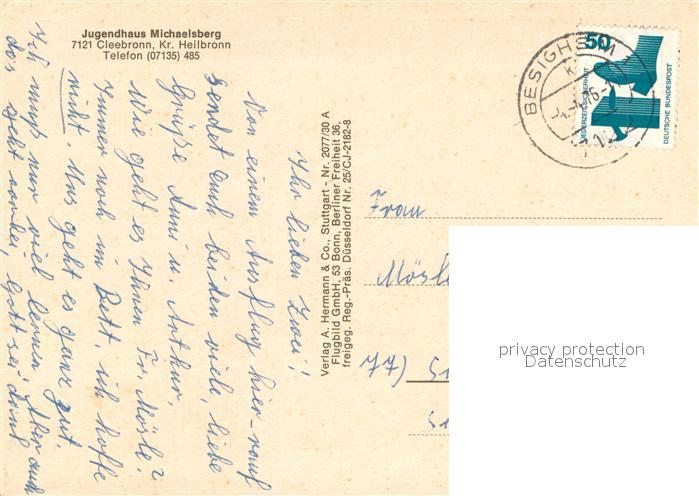 Jugendhaus Michaelsberg
7121 Cleebronn, Kr. Heilbronn
Telefon (07135) 485
Ihr lieben Zwei!
Von einem Ausflug hier-rauf
sendet Euch beiden viele, liebe
Grüße Anni u. Arthur.
Wie geht es Ihnen Fr. Mösle?
Immer noch im Bett ich hoffe
nicht Uns geht es ganz gut.
Ich muß nur viel lernen Aber auch
das geht vorbei, Gott sei Dank
Verlag A. Hermann & Co., Stuttgart - Nr. 2077/30 A
Flugbild GmbH, 53 Bonn, Berliner Freiheit 36,
freigeg. Reg.-Präs. Düsseldorf Nr. 25/CJ-2182-8
BESIGHEIM
50
JEDERZEIT SICHERHEIT
DEUTSCHE BUNDESPOST
Frau
Mösle
77)
privacy protection
Datenschutz